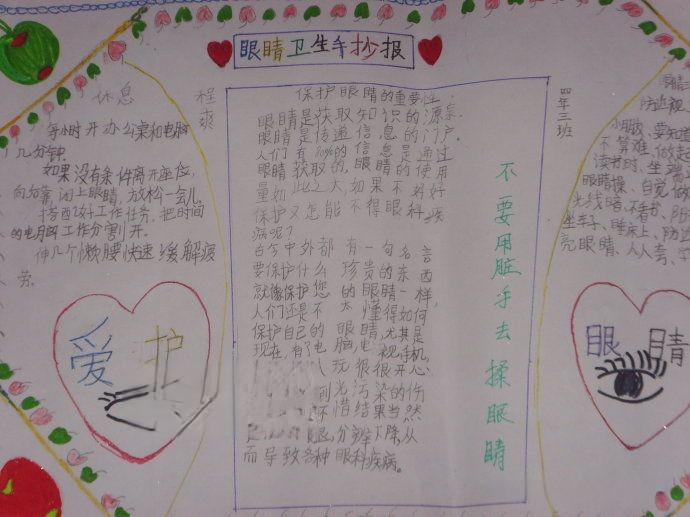 眼睛卫生手抄报
休息
程爽
每小时开办公桌和电脑
几分钟
如果没有条件离开座位,
向后靠,闭上眼睛,放松一会儿。
搭配好工作任务,把时间
的电脑工作分割开。
伸几个懒腰快速缓解疲
劳。
爱护
保护眼睛的重要性:
眼睛是获取知识的源泉。
眼睛是传递信息的门户。
人们有70%的信息是通过
眼睛获取的,眼睛的使用
量如此之大,如果不好好
保护又怎能不得眼科疾
病呢?
古今中外都有一句名言
要保护什么珍贵的东西
就像保护您的眼睛一样,
人们还是不太懂得如何
保护自己的眼睛,尤其是
现在,有了电脑,电视,手机,
人玩很很开心
到光污染的伤
不惜结果当然
退,分辨下降,从
而导致各种眼科疾病。
不要用脏手去揉眼睛
四年三班
眼睛
防近视
小朋友,要知道
不算难,做起
读书时,坐端
眼睛操,自觉做
光线暗,不看书,阳
坐车子,睡床上,防近
亮眼睛,人人夸,
眼睛